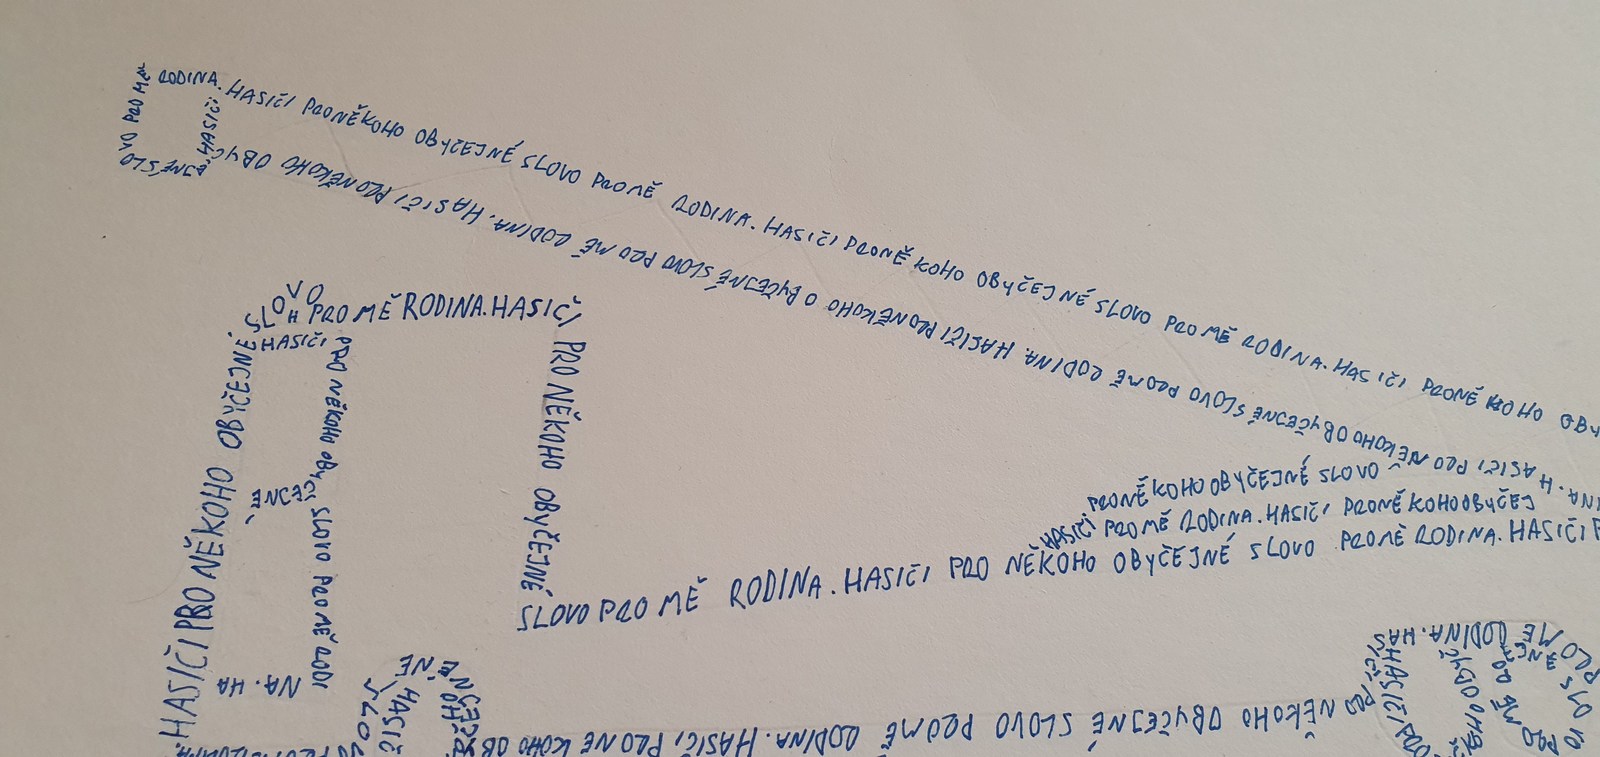 RODINA. HASIČI PRO NĚKOHO OBYČEJNÉ SLOVO PRO MĚ RODINA. HASIČI PRO NĚKOHO OBYČEJNÉ SLOVO PRO MĚ RODINA. HASIČI PRO NĚKOHO OBY
HASIČI
NA. HASIČI PRO NĚKOHO OBYČEJNÉ SLOVO PRO MĚ RODINA. HASIČI PRO NĚKOHO OBYČEJNÉ SLOVO PRO MĚ RODINA. HASIČI PRO NĚKOHO OBYČ
EJNÉ SLO
VO PRO MĚ
HASIČI PRO NĚKOHO OBYČEJNÉ
SLOVO
PRO MĚ RODINA. HASIČI
PRO NĚKOHO OBYČEJNÉ
SLOVO PRO MĚ RODINA. HASIČI PRO NĚKOHO OBYČEJNÉ SLOVO PRO MĚ RODINA. HASIČI
HASIČI
PRO NĚKOHO OBYČ
SLOVO PRO MĚ RODI
NA. HA
HASIČI
PRO NĚKOHO OBYČEJNÉ SLOVO
PRO MĚ RODINA. HASIČI PRO NĚKOHO OBYČEJ
HASIČI PRO NĚKOHO OBYČEJNÉ SLOVO PRO MĚ RODINA. HASIČI PRO NĚKOHO OB
PRO MĚ RODINA. HAS
HASIČI